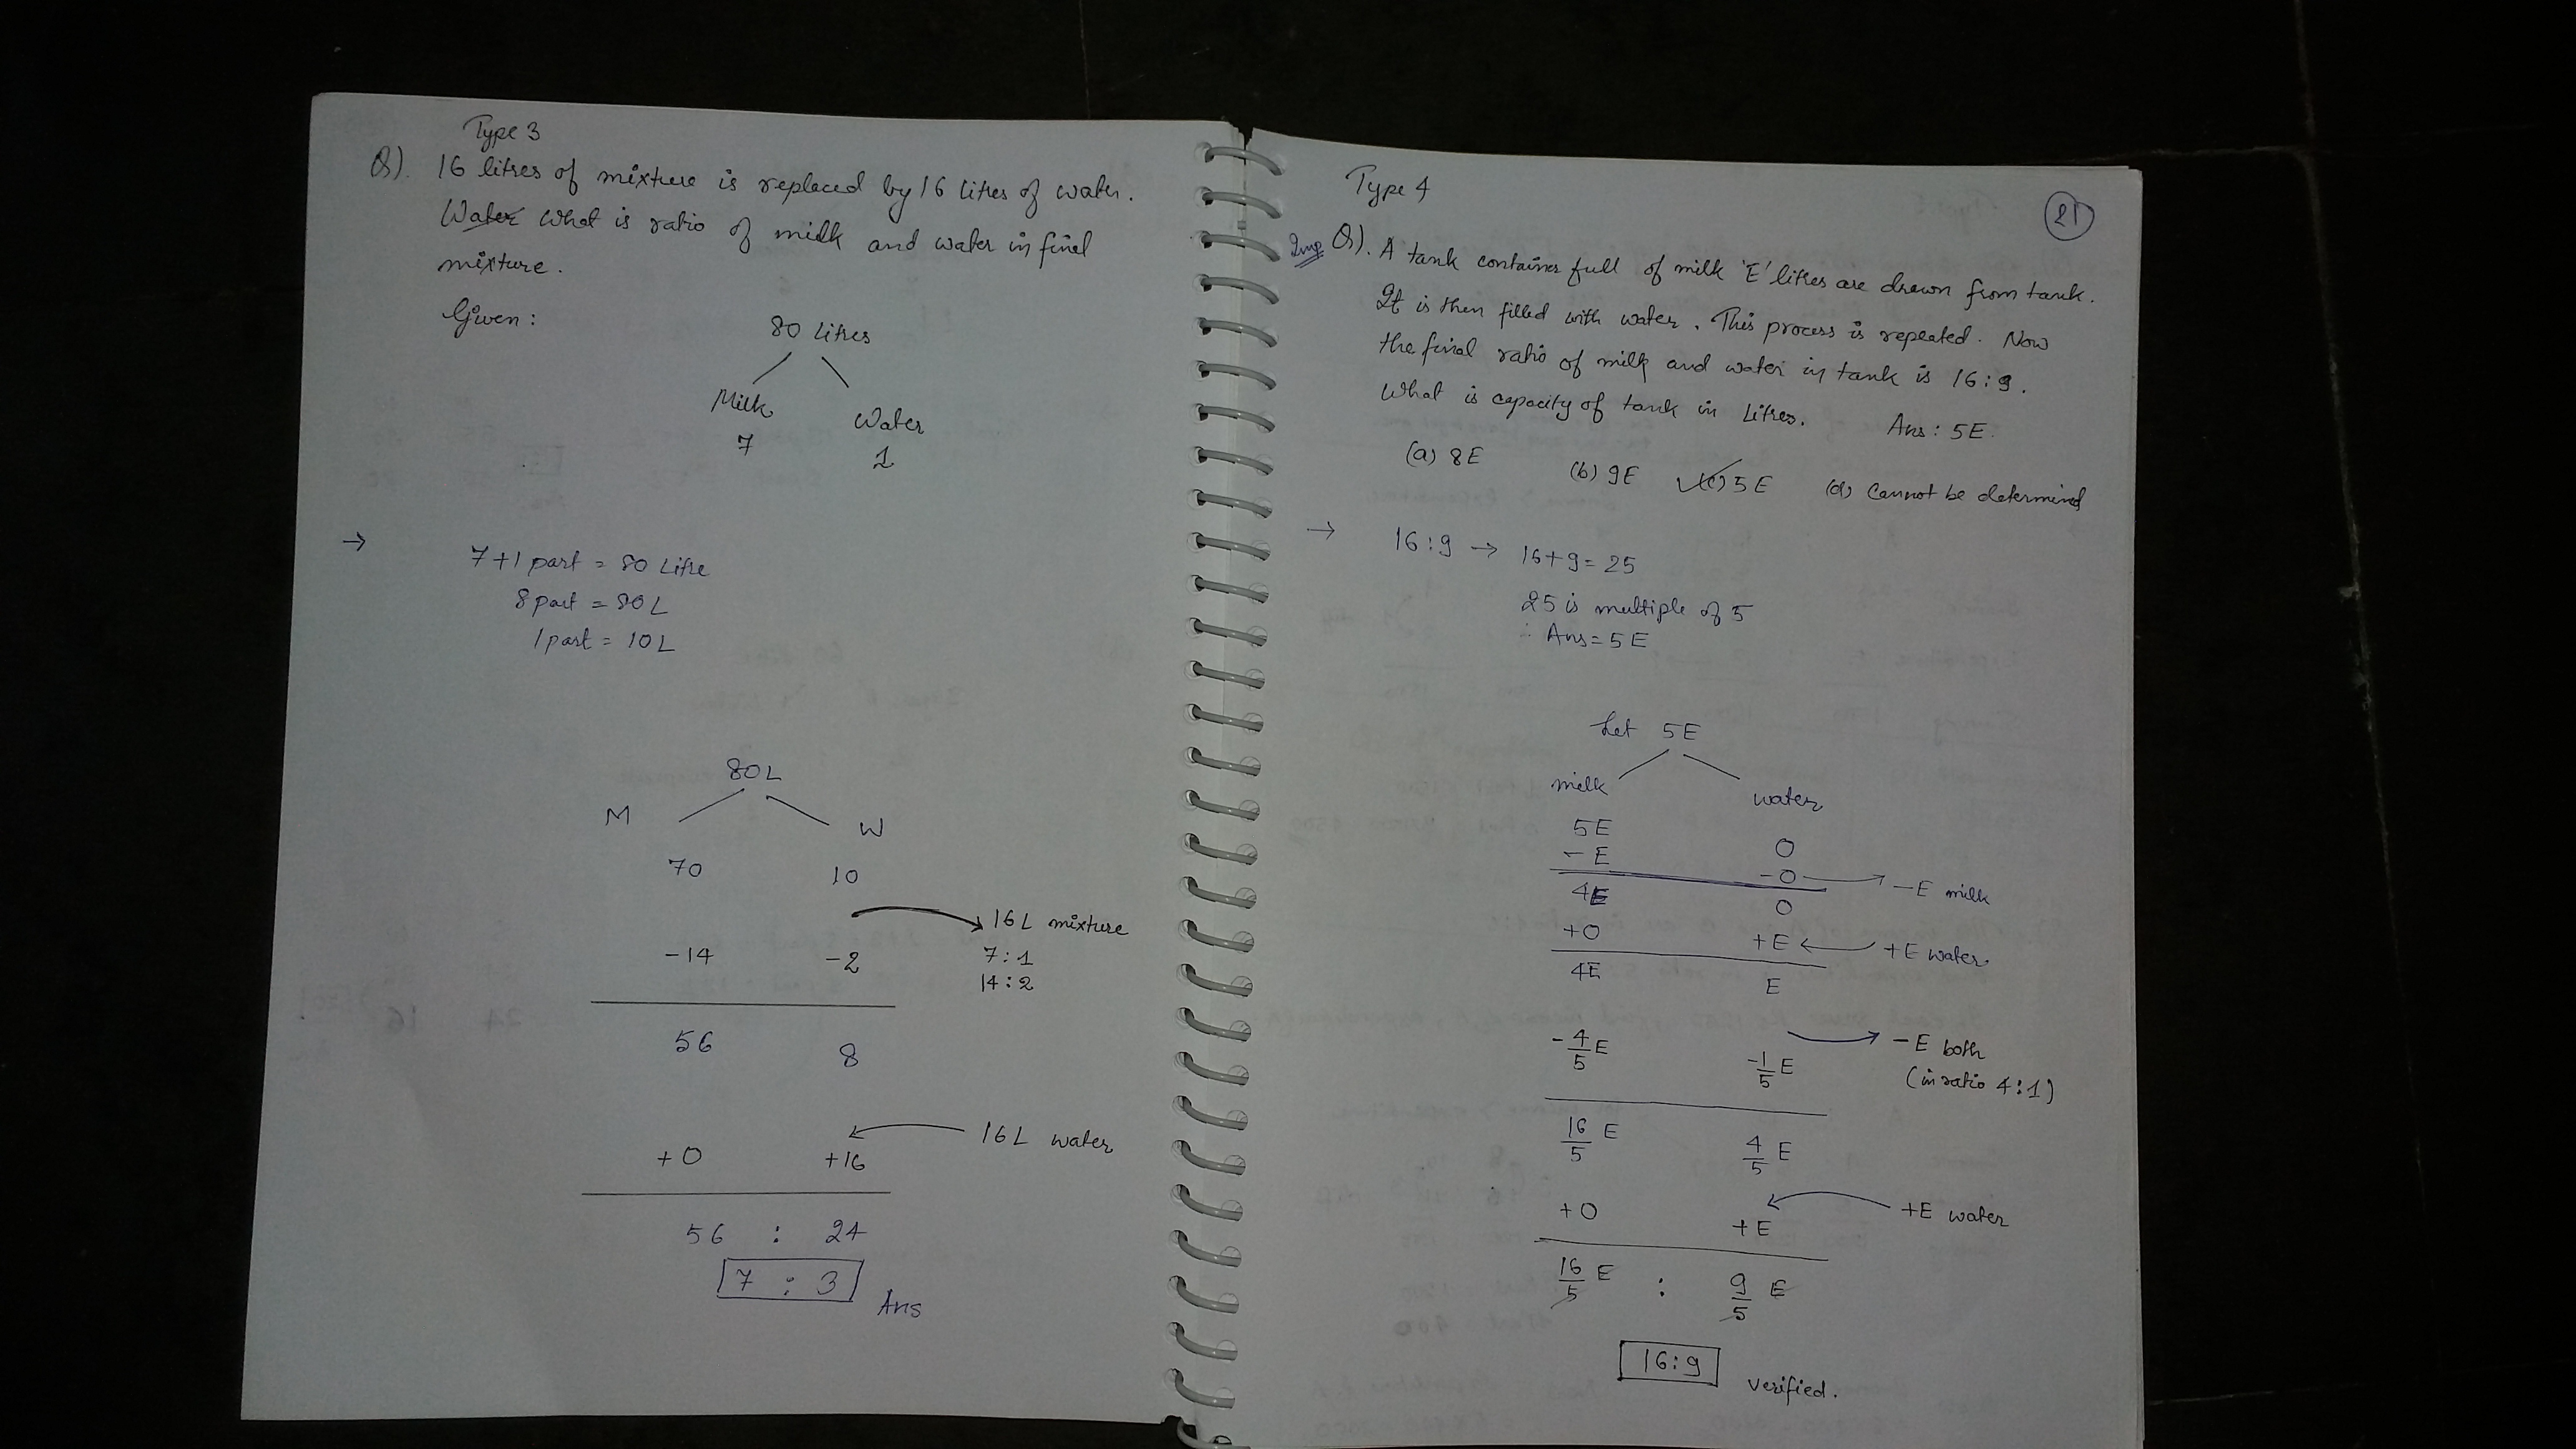 Type 3
Q). 16 litres of mixture is replaced by 16 litres of water.
Water What is ratio of milk and water in final
mixture.
Given :
80 Litres
Milk Water
7 1
→ 7+1 part = 80 Litre
8 part = 80 L
1 part = 10 L
80L
M W
70 10
16L mixture
-14 -2 7:1
14:2
56 8
16L water
+0 +16
56 : 24
7 : 3 Ans
Type 4
21
Imp Q). A tank contains full of milk 'E' litres are drawn from tank.
It is then filled with water. This process is repeated. Now
the final ratio of milk and water in tank is 16:9.
What is capacity of tank in Litres. Ans: 5E.
(a) 8E (b) 9E (c) 5E (d) Cannot be determined
→ 16:9 → 16+9=25
25 is multiple of 5
∴ Ans = 5E
Let 5E
milk water
5E 0
-E -0 → -E milk
4E 0
+0 +E ← +E water
4E E
-4/5 E -1/5 E → -E both
(in ratio 4:1)
16/5 E 4/5 E
+0 +E ← +E water
16/5 E : 9/5 E
16:9 verified.